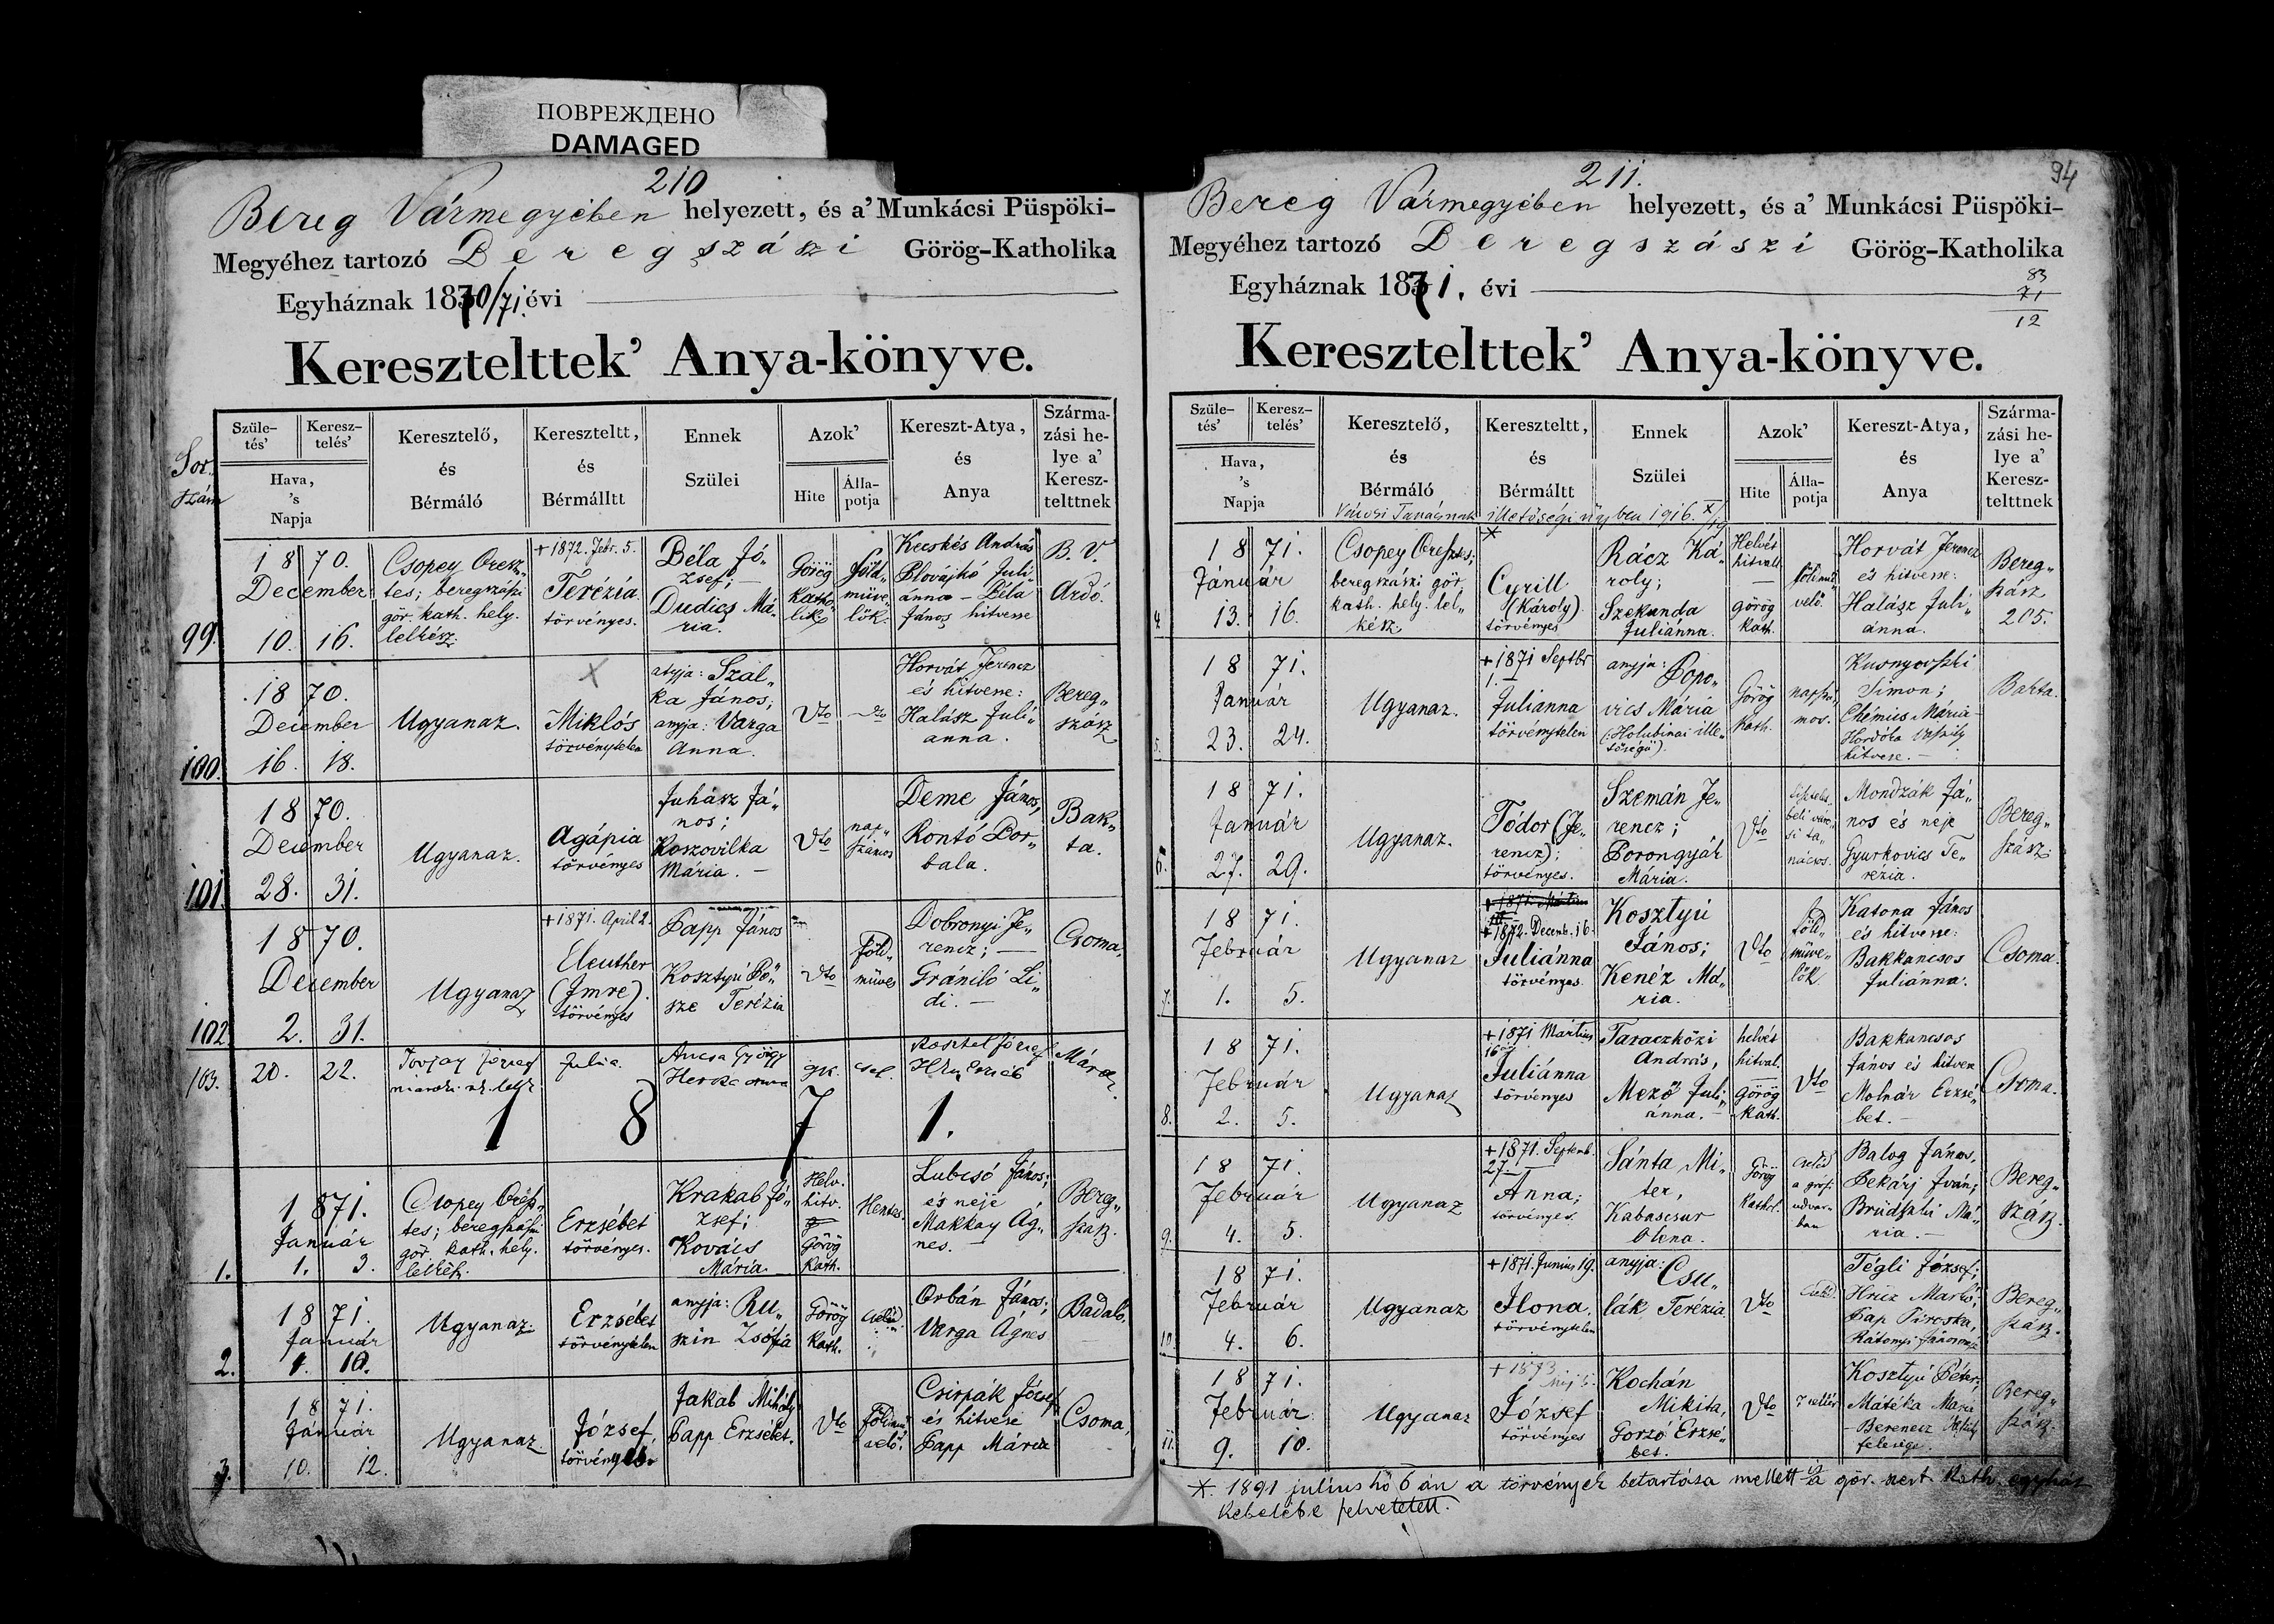 ПОВРЕЖДЕНО
DAMAGED
210
Bereg Vármegyében helyezett, és a' Munkácsi Püspöki-
Megyéhez tartozó Beregszászi Görög-Katholika
Egyháznak 1870/71. évi
Keresztelttek' Anya-könyve.
Sor szám
Születés' Keresztelés' Hava, 's Napja
Keresztelő, és Bérmáló
Kereszteltt, és Bérmálltt
Ennek Szülei
Azok' Hite Állapotja
Kereszt-Atya, és Anya
Származási helye a' Keresztelttnek
99.
1870.
December
10. 16.
Csopey Oresz„
tes; beregszászi
gör. kath. hely.
lelkész.
+ 1872. Febr. 5.
Terézia
törvényes.
Béla Jó„
zsef; —
Dudics Má„
ria.
Görög
Katho„
lik.
föld„
müve„
lök.
Kecskés András
Juli„
ánna — Béla
János hitvese
B. V.
Ardó.
100.
1870.
December
16. 18.
Ugyanaz.
X
Miklós
törvénytelen
atyja: Szal„
ka János;
anyja: Varga
Anna.
dto
dto
Horvát Ferencz
és hitvese:
Halász Juli„
anna.
Bereg„
szász
101.
1870.
December
28. 31.
Ugyanaz.
Agápia
törvényes
Juhász Já„
nos;
Koszovilka
Mária. —
dto
nap„
számos
Deme János,
Kontó Bor„
bala.
Bak„
ta.
102.
1870.
December
2. 31.
Ugyanaz
+ 1871. April 2.
Eleuther
(Imre).
törvényes
Papp János
Kosztyú Bö„
sze Terézia
dto
föld„
müves
Dobronyi Fe„
rencz; —
Grániló Li„
di. —
Csoma.
103.
20. 22.
Julia.
Ancsa György
gk.
csel.
József
1871.
1.
1871.
Január
1. 3.
Csopey Oresz„
tes; beregszászi
gör. kath. hely.
lelkész.
Erzsébet
törvényes.
Krakab Jó„
zsef;
Kovács
Mária.
Helv.
hitv.
Görög
Kath.
Hentes.
Lubcsó János;
és neje
Makkay Ág„
nes.
Bereg„
szász.
2.
1871.
Január
1. 10.
Ugyanaz.
Erzsébet
törvénytelen
anyja: Ru„
szin Zsófia
Görög
Kath.
cseléd.
Orbán János;
Varga Ágnes
Badaló.
3.
1871.
Január
10. 12.
Ugyanaz
József,
törvényes.
Jakab Mihály
Papp Erzsébet.
dto
földmü„
velő.
Csirpák József
és hitvese
Papp Mária
Csoma.
211.
94
Bereg Vármegyében helyezett, és a' Munkácsi Püspöki-
Megyéhez tartozó Beregszászi Görög-Katholika
Egyháznak 1871. évi
83
71
12
Keresztelttek' Anya-könyve.
Születés' Keresztelés' Hava, 's Napja
Keresztelő, és Bérmáló
Kereszteltt, és Bérmáltt
Ennek Szülei
Azok' Hite Állapotja
Kereszt-Atya, és Anya
Származási helye a' Keresztelttnek
Városi Tanácsnak illetőségi ügyben 1916. X/19
4.
1871.
Január
13. 16.
Csopey Oresztes;
beregszászi gör.
kath. hely. lel„
kész.
*
Cyrill
(Károly).
törvényes
Rácz Ká„
roly;
Szekunda
Juliánna.
Helvét
hitvall.
—
görög
kath.
földmü„
velő.
Horvát Ferencz
és hitvese:
Halász Juli„
ánna.
Bereg„
szász
205.
5.
1871.
Január
23. 24.
Ugyanaz.
+ 1871 Septbr
1. —
Julianna
törvénytelen
anyja: Popo„
vics Mária
(: Holubinai ille„
tőségü).
Görög
Kath.
napszá„
mos.
Simon;
Mária —
hitvese. —
Bakta.
6.
1871.
Január
27. 29.
Ugyanaz.
Tódor (Fe„
rencz);
törvényes.
Szemán Fe„
rencz;
Porongyár
Mária.
dto
tiszteletbeli váro„
si ta„
nácsos.
Mondzák Já„
nos és neje
Gyurkovics Te„
rézia.
Bereg„
szász.
7.
1871.
Február
1. 5.
Ugyanaz
+ 1872. Decemb. 16.
Juliánna
törvényes.
Kosztyú
János;
Kenéz Má„
ria.
dto
föld„
müve„
lök
Katona János
és hitvese:
Bakkancsos
Juliánna.
Csoma.
8.
1871.
Február
2. 5.
Ugyanaz
+ 1871 Mártius
16án
Juliánna
törvényes
Taraczközi
András,
Mező Juli„
ánna. —
helvét
hitval.
—
Görög
Kath.
dto
Bakkancsos
János és hitvese
Molnár Erzsé„
bet. —
Csoma.
9.
1871.
Február
4. 5.
Ugyanaz
+ 1871. Septemb.
27. —
Anna;
törvényes.
Sánta Mi„
ter,
Kabascsur
Olena.
Görög
Kathol.
cseléd
a gróf.
udvar„
ban
Balog János,
Pekárj Iván;
Má„
ria. —
Bereg„
szász.
10.
1871.
Február
4. 6.
Ugyanaz
+ 1871. Junius 19.
Ilona.
törvénytelen
anyja: Csu„
lák Terézia.
dto
cseléd.
Tégli József;
Hricz Markó,
Pap Piroska,
Bereg„
szász.
11.
1871.
Február
9. 10.
Ugyanaz
+ 1873
József
törvényes
Kochán
Mikita,
Gorzó Erzsé„
bet.
dto
Kosztyú Péter,
Mátéka Mari
felesége.
Bereg„
szász.
*. 1891 julius hó 6 án a törvények betartása mellett is a gör. szert. Kath. egyház
kebelébe felvetetett.